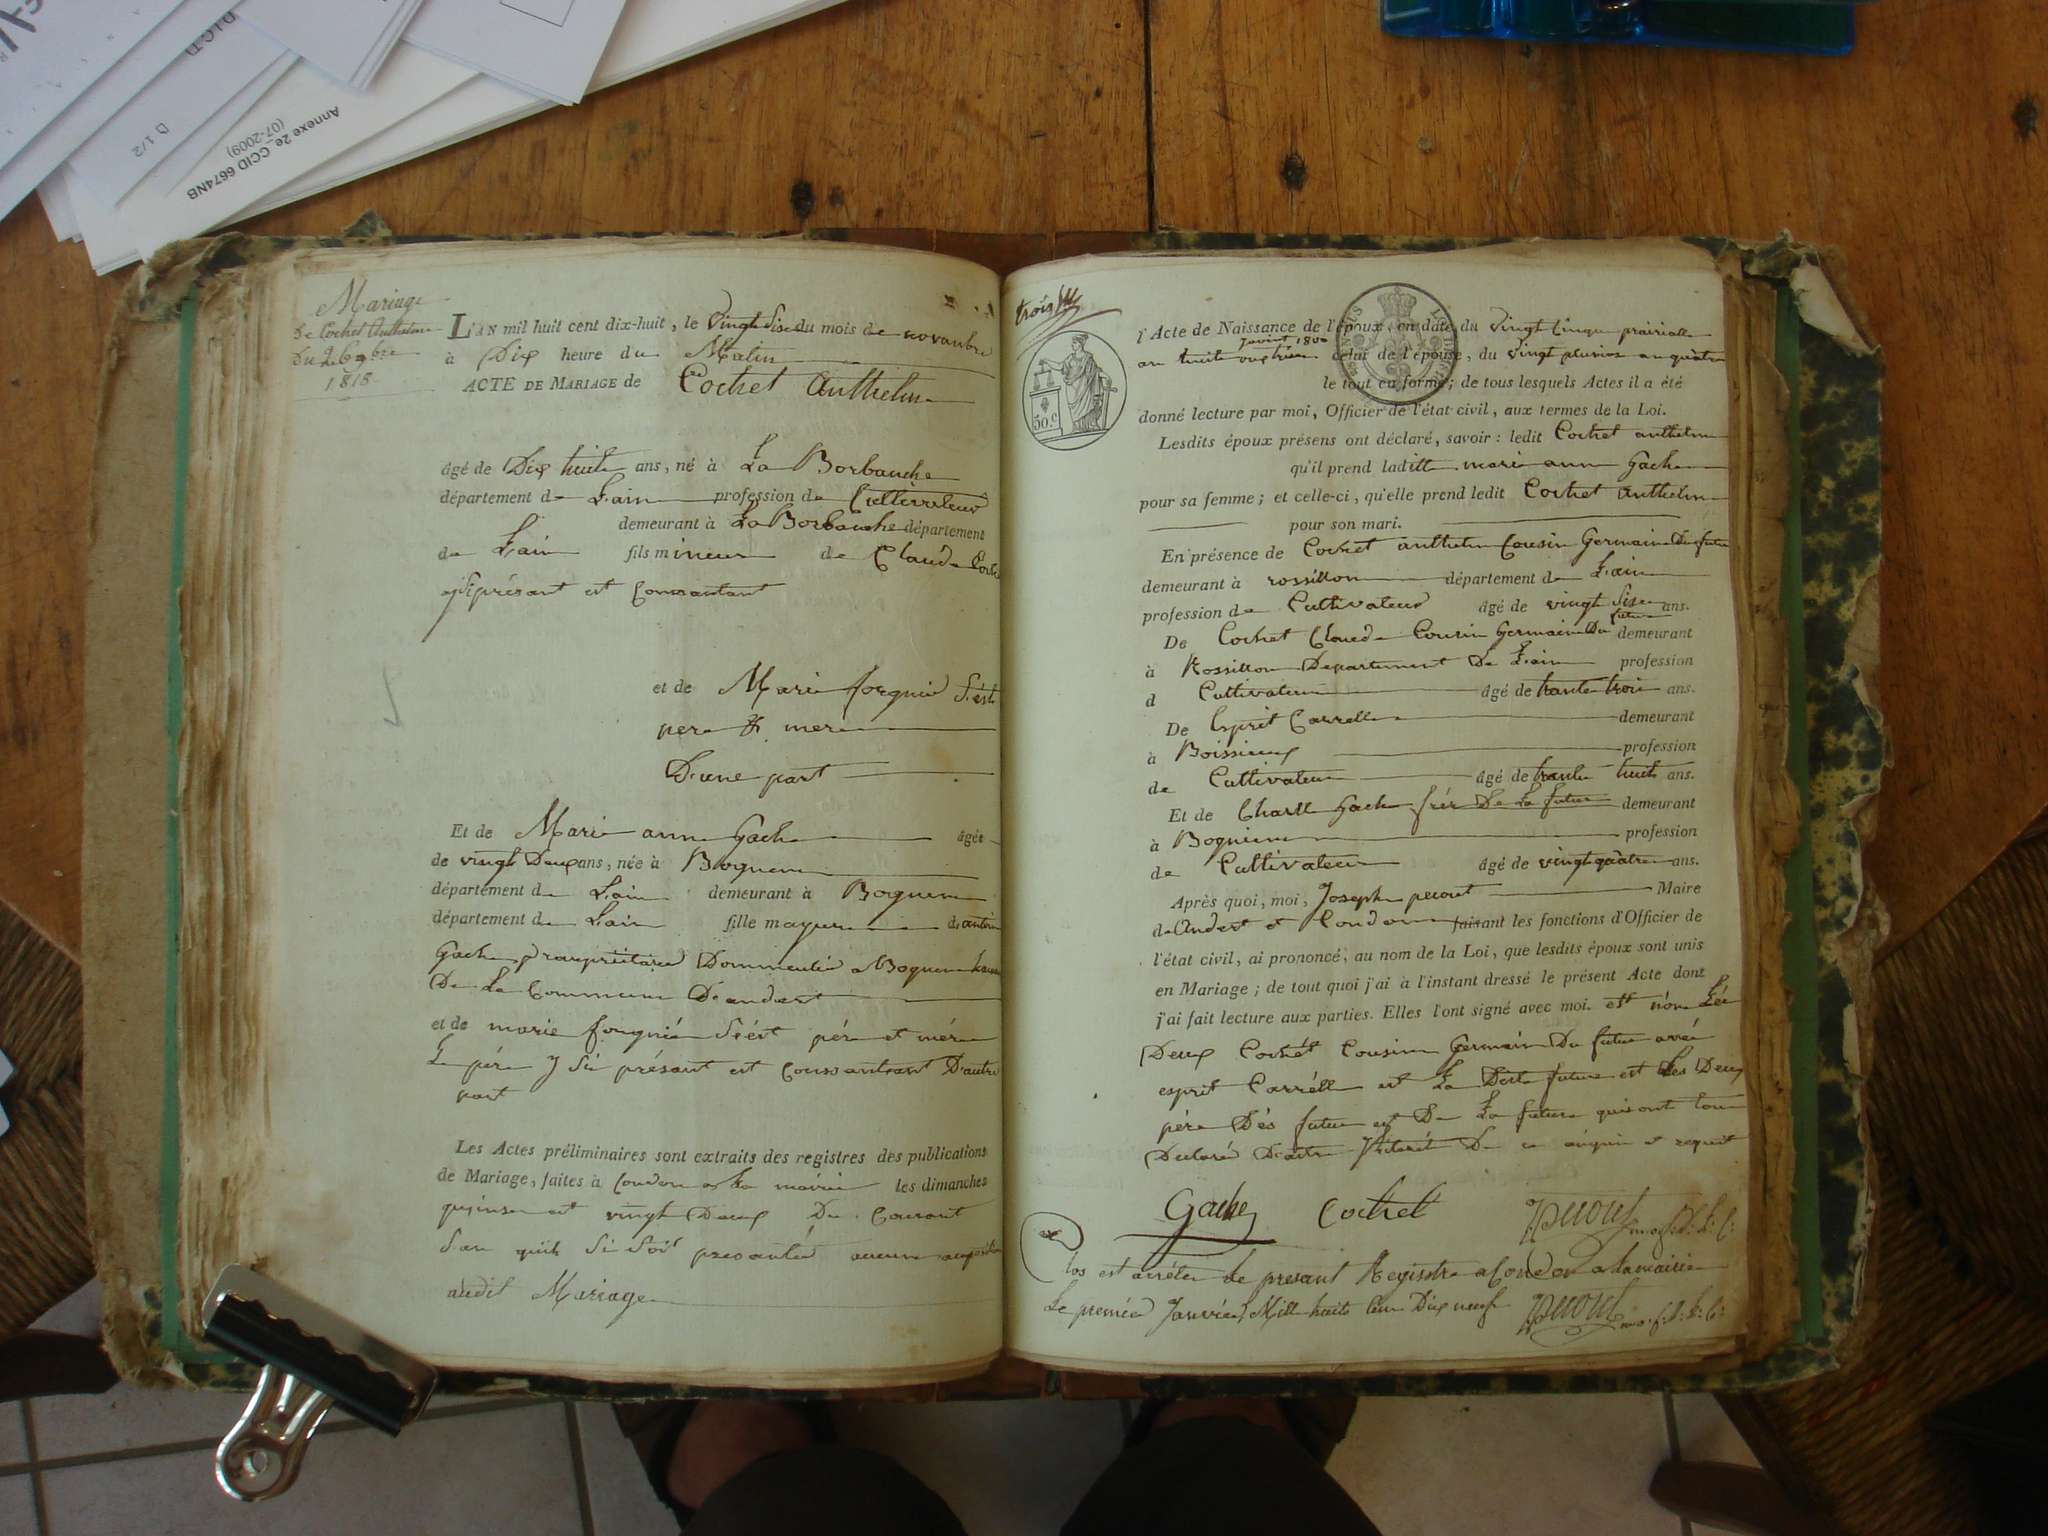 Annexe 2e CCID 6674NB
(07-2009)
D 1/2
Mariage
De Cochet Anthelme
Du 26 9bre
1818
L'AN mil huit cent dix-huit, le vingt Six du mois de novanbre
à Dix heure du Matin
ACTE DE MARIAGE de Cochet Anthelme
âgé de Dix huit ans, né à La Borbanche
département de L'ain profession de Cultivateur
demeurant à La Borbanche département
de L'ain fils mineur de Claude Coche
présant et Consantant
et de Marie fognié
pere & mere
D'une part
Et de Marie anne Gache âgée
de vingt Deux ans, née à Bognens
département de L'ain demeurant à Bognens
département de L'ain fille mayeure d'anti
Gache propriétaire a Bognens
De La Commune D'andert
et de marie fognié péré et mére
Le pére y présant et Consantant D'autre
part
Les Actes préliminaires sont extraits des registres des publications
de Mariage, faites à Condon a La mairie les dimanches
quinse et vingt Deux Du Courant
San qu'ils Si Soit presanté aucune
audit Mariage
trois
50.c
l'Acte de Naissance de l'époux, en date du vingt Cinq prairialle
an huit 1800 celui de l'épouse, du vingt pluvios an quatre
le tout en forme; de tous lesquels Actes il a été
donné lecture par moi, Officier de l'état civil, aux termes de la Loi.
Lesdits époux présens ont déclaré, savoir: ledit Cochet anthelme
qu'il prend laditte marie anne Gache
pour sa femme; et celle-ci, qu'elle prend ledit Cochet anthelme
pour son mari.
En présence de Cochet anthelme Cousin Germain Du futur
demeurant à rossillon département de L'ain
profession de Cultivateur âgé de vingt Six ans.
De Cochet Claude Cousin Germain Du futur demeurant
à Rossillon Departement De L'ain profession
d Cultivateur âgé de trante trois ans.
De Esprit Carrelle demeurant
à Boissieux profession
de Cultivateur âgé de trante huit ans.
Et de Charle Gache frér De La future demeurant
à Bognens profession
de Cultivateur âgé de vingt quatre ans.
Après quoi, moi, Joseph pecout Maire
de Andert et Condon faisant les fonctions d'Officier de
l'état civil, ai prononcé, au nom de la Loi, que lesdits époux sont unis
en Mariage; de tout quoi j'ai à l'instant dressé le présent Acte dont
j'ai fait lecture aux parties. Elles l'ont signé avec moi. et non Lés
Deux Cochet Cousin Germain Du futur
esprit Carrélle et La Dite future et Les Deux
pére Dés futur et De La future qui ont tous
Déclaré De ce anquis et requit
Gache Cochet Pecout
Clos et arrété le presant Registre a Condon a la mairie
Le premié Janvié Mill huits Cent Dix neuf Pecout